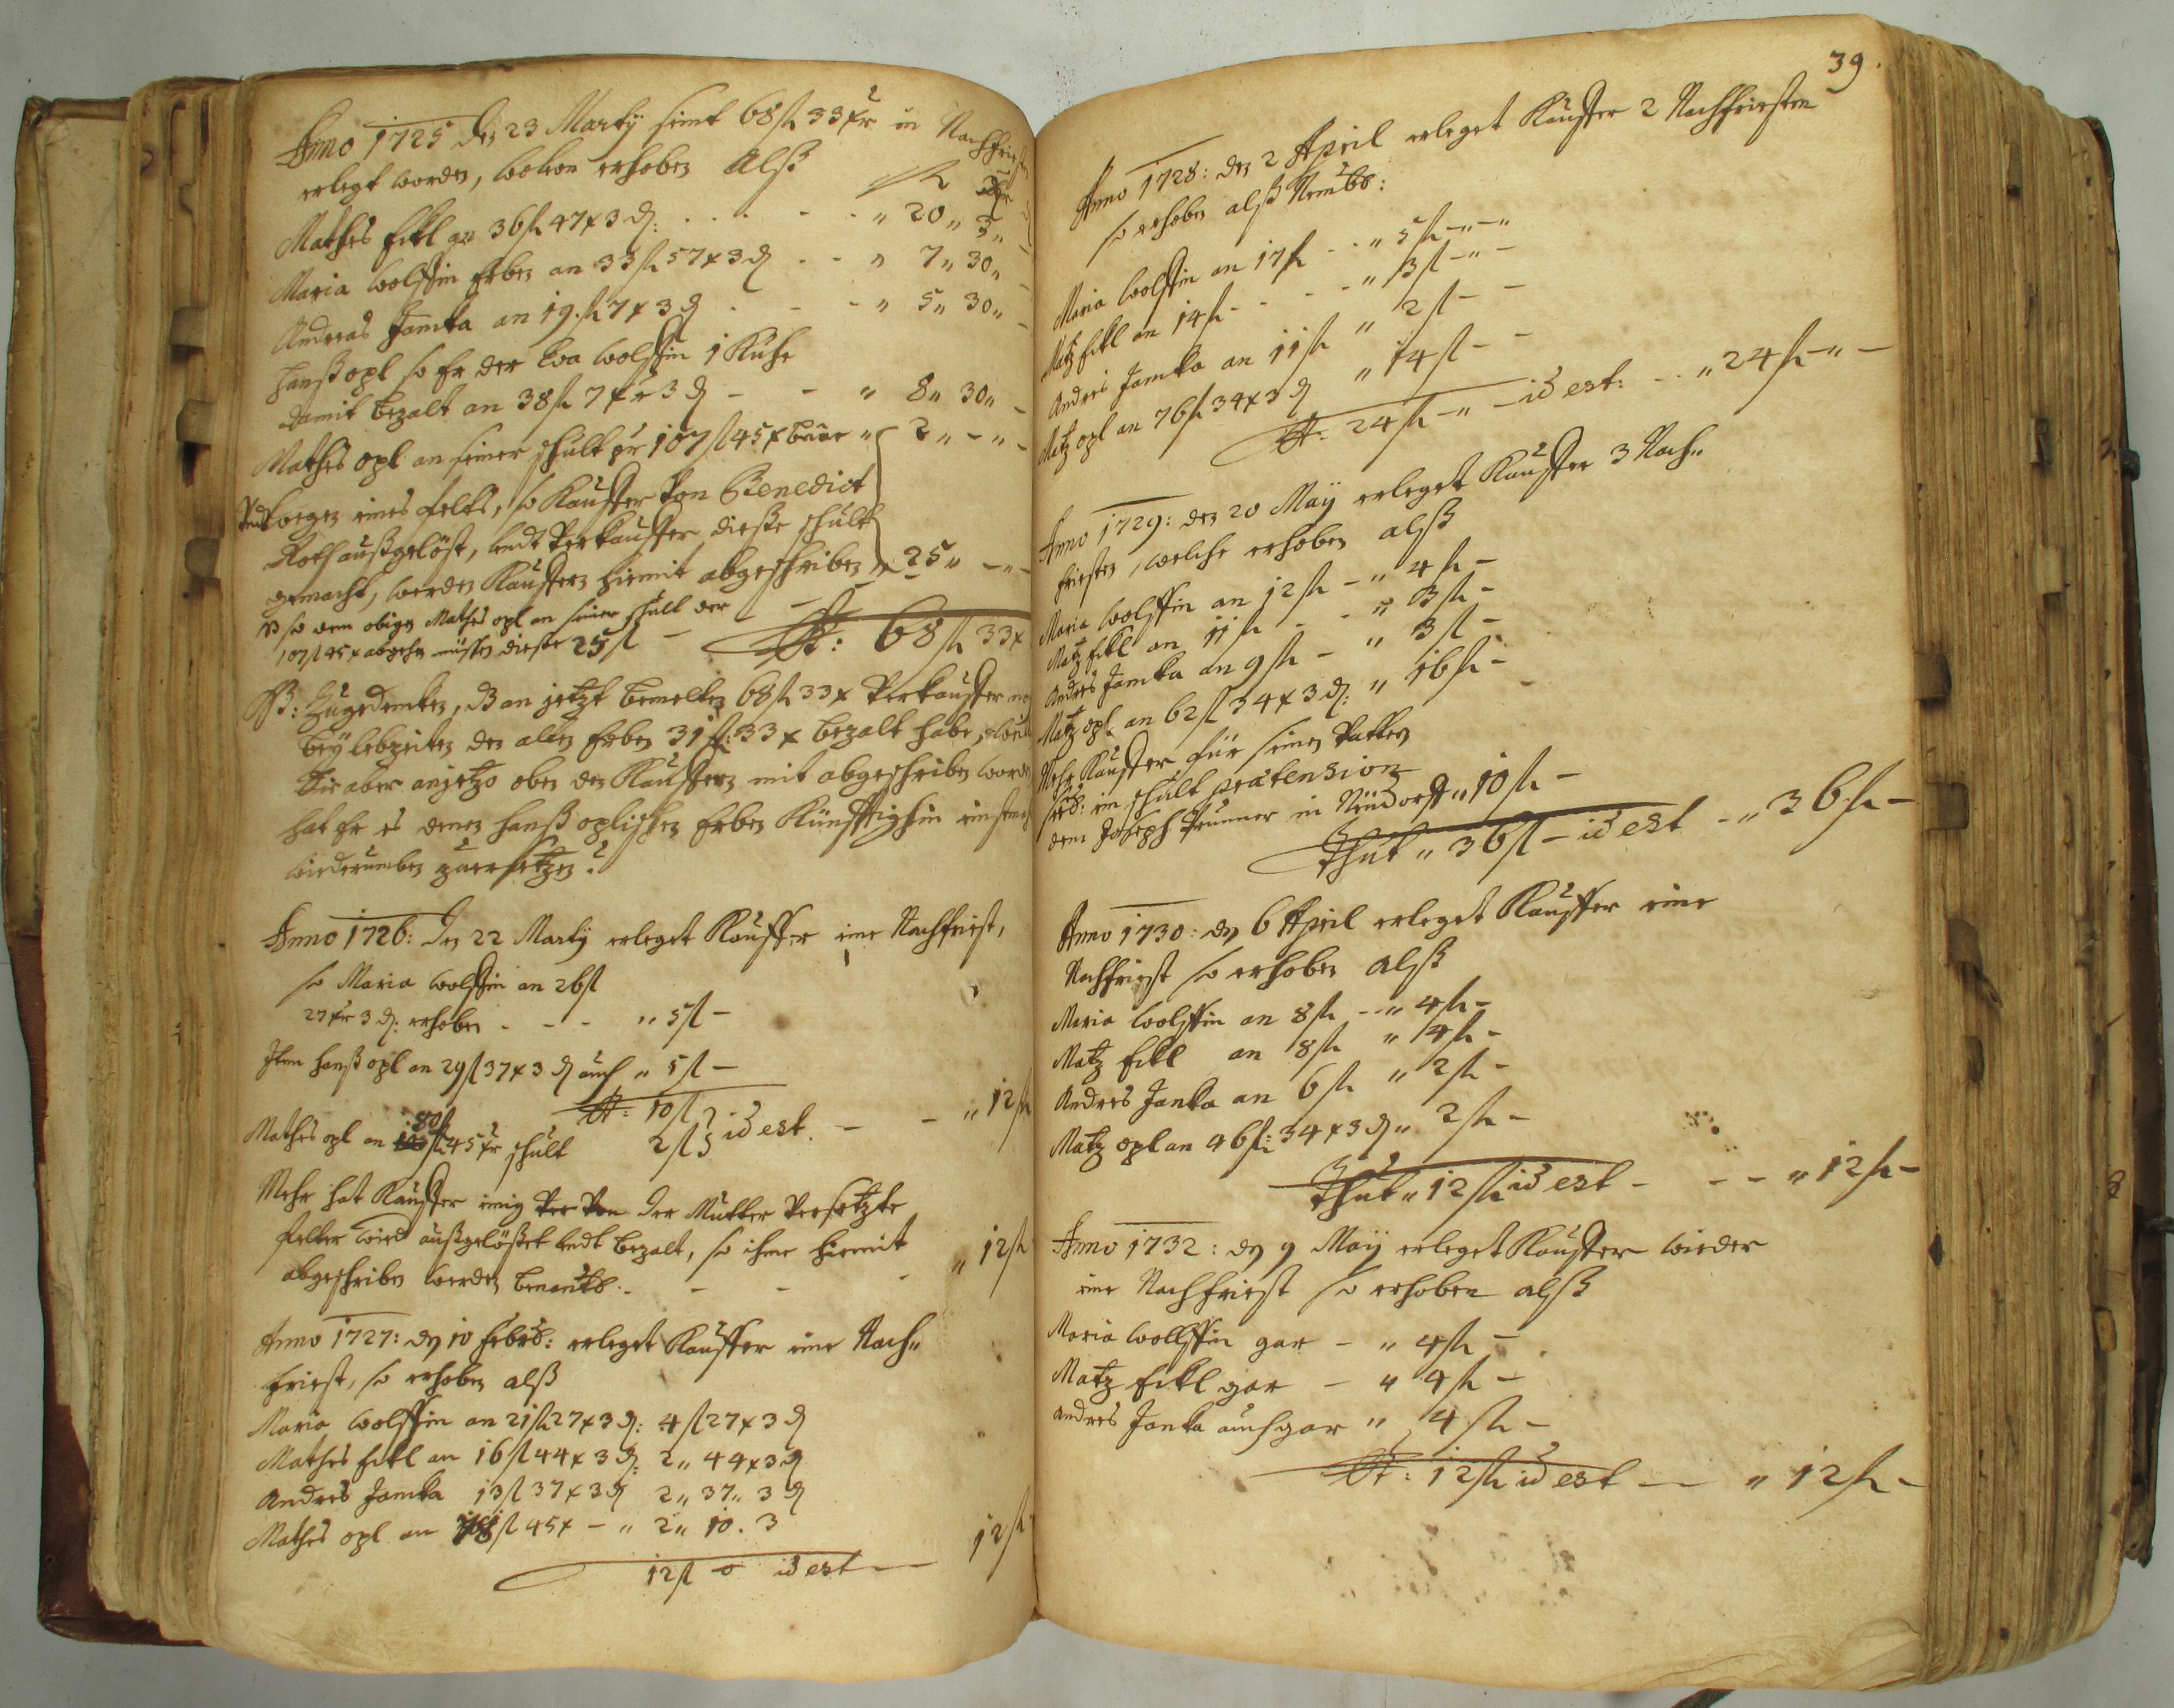 Anno 1725 den 23 Martÿ seint 68 fl 33 xr in Nachfrist
erlegt worden, wovon erhoben alß
fl xr
Mathes Eckl an 36 fl 47 x 3 d: . . . - . „ 20 „ 3 „ -
Maria Wolffin Erben an 33 fl 57 x 3 d . - „ 7 „ 30 „ -
Andreas Jamka an 19 fl 7 x 3 d - - - „ 5 „ 30 „ -
Hanß Opl so Er der Eva Wolffin 1 Kuhe
damit bezalt an 38 fl 7 xr 3 d - - „ 8 „ 30 „ -
Mathes Opl an seiner schult pr 107 fl 45 x baar „ 2 „ - „ -
Undt wegen eines felds, so Kauffer von Benedict
Roth außgelöst, undt Verkauffer diesse schult
gemacht, werden Kauffern hiemit abgeschriben „ 25 „ - „ -
so dem obigen Mathes Opl an seiner schult der
107 fl 45 x abgehen müssen diesse 25 fl -
St: 68 fl 33 x
NB: Zugedencken, das an jetzt bemelten 68 fl 33 x Verkauffer
beÿ lebzeiten den alten Erben 31 fl: 33 x bezalt habe, weil
Sie aber anjetzo oben den Kauffern mit abgeschriben worden
hat Er es denen Hanß Oplischen Erben Künfftighin
widerumben zuersetzen.
Anno 1726: Den 22 Martÿ erleget Kauffer eine Nachfrist,
so Maria Wolffin an 26 fl
27 xr 3 d: erhoben - - - „ 5 fl -
Item Hanß Opl an 29 fl 37 x 3 d auch „ 5 fl -
St: 10 fl
Mathes Opl an 80 fl 45 xr schult 2 fl id est. - - „ 12 fl
Mehr hat Kauffer der Mutter Versetzte
felder wider außgelößet undt bezalt, so ihme hiemit
abgeschriben werden - - - „ 12 fl
Anno 1727: den 10 Febrs: erleget Kauffer eine Nach„
frist, so erhoben alß
Maria Wolffin an 21 fl 27 x 3 d: 4 fl 27 x 3 d
Mathes Eckl an 16 fl 44 x 3 d: 2 „ 44 x 3 d
Andres Jamka 13 fl 37 x 3 d 2 „ 37 „ 3 d
Mathes Opl an fl 45 x - „ 2 „ 10 . 3
12 fl id est - 12 fl
39.
Anno 1728: den 2 April erleget Kauffer 2 Nachfristen
so erhoben alß
Maria Wolffin an 17 fl - - „ 5 fl - „ - „
Matz Eckl an 14 fl - - - „ 3 fl - „ -
Andres Jamka an 11 fl „ 2 fl - -
Matz Opl an 76 fl 34 x 3 d „ 14 fl - -
St: 24 fl - „ - id est: - - „ 24 fl - „ -
Anno 1729: den 20 Maÿ erleget Kauffer 3 Nach„
fristen, welche erhoben alß
Maria Wolffin an 12 fl - „ 4 fl -
Matz Eckl an 11 fl - - „ 3 fl -
Andres Jamka an 9 fl - „ 3 fl -
Matz Opl an 62 fl 34 x 3 d: „ 16 fl -
Mehr Kauffer für seinen Vattern
schult prætension
dem Joseph Brunner in Neudorff „ 10 fl -
Thut „ 36 fl - id est - „ 36 fl -
Anno 1730: den 6 April erleget Kauffer eine
Nachfrist so erhoben alß
Maria Wolffin an 8 fl - „ 4 fl -
Matz Eckl an 8 fl „ 4 fl -
Andres Janka an 6 fl „ 2 fl -
Matz Opl an 46 fl: 34 x 3 d „ 2 fl -
Thut „ 12 fl id est - - - „ 12 fl -
Anno 1732: den 9 Maÿ erleget Kauffer wieder
eine Nachfrist so erhoben alß
Maria Wollffin gar - „ 4 fl -
Matz Eckl gar - „ 4 fl -
Andres Janka auch gar „ 4 fl -
St: 12 fl id est - „ 12 fl -